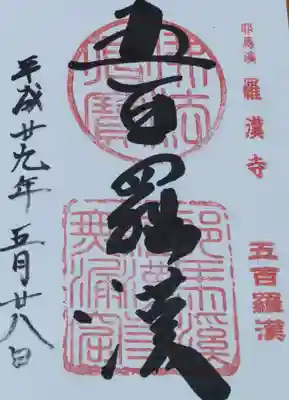 耶馬渓 羅漢寺
五百羅漢
五百羅漢
平成廿九年 五月廿八日